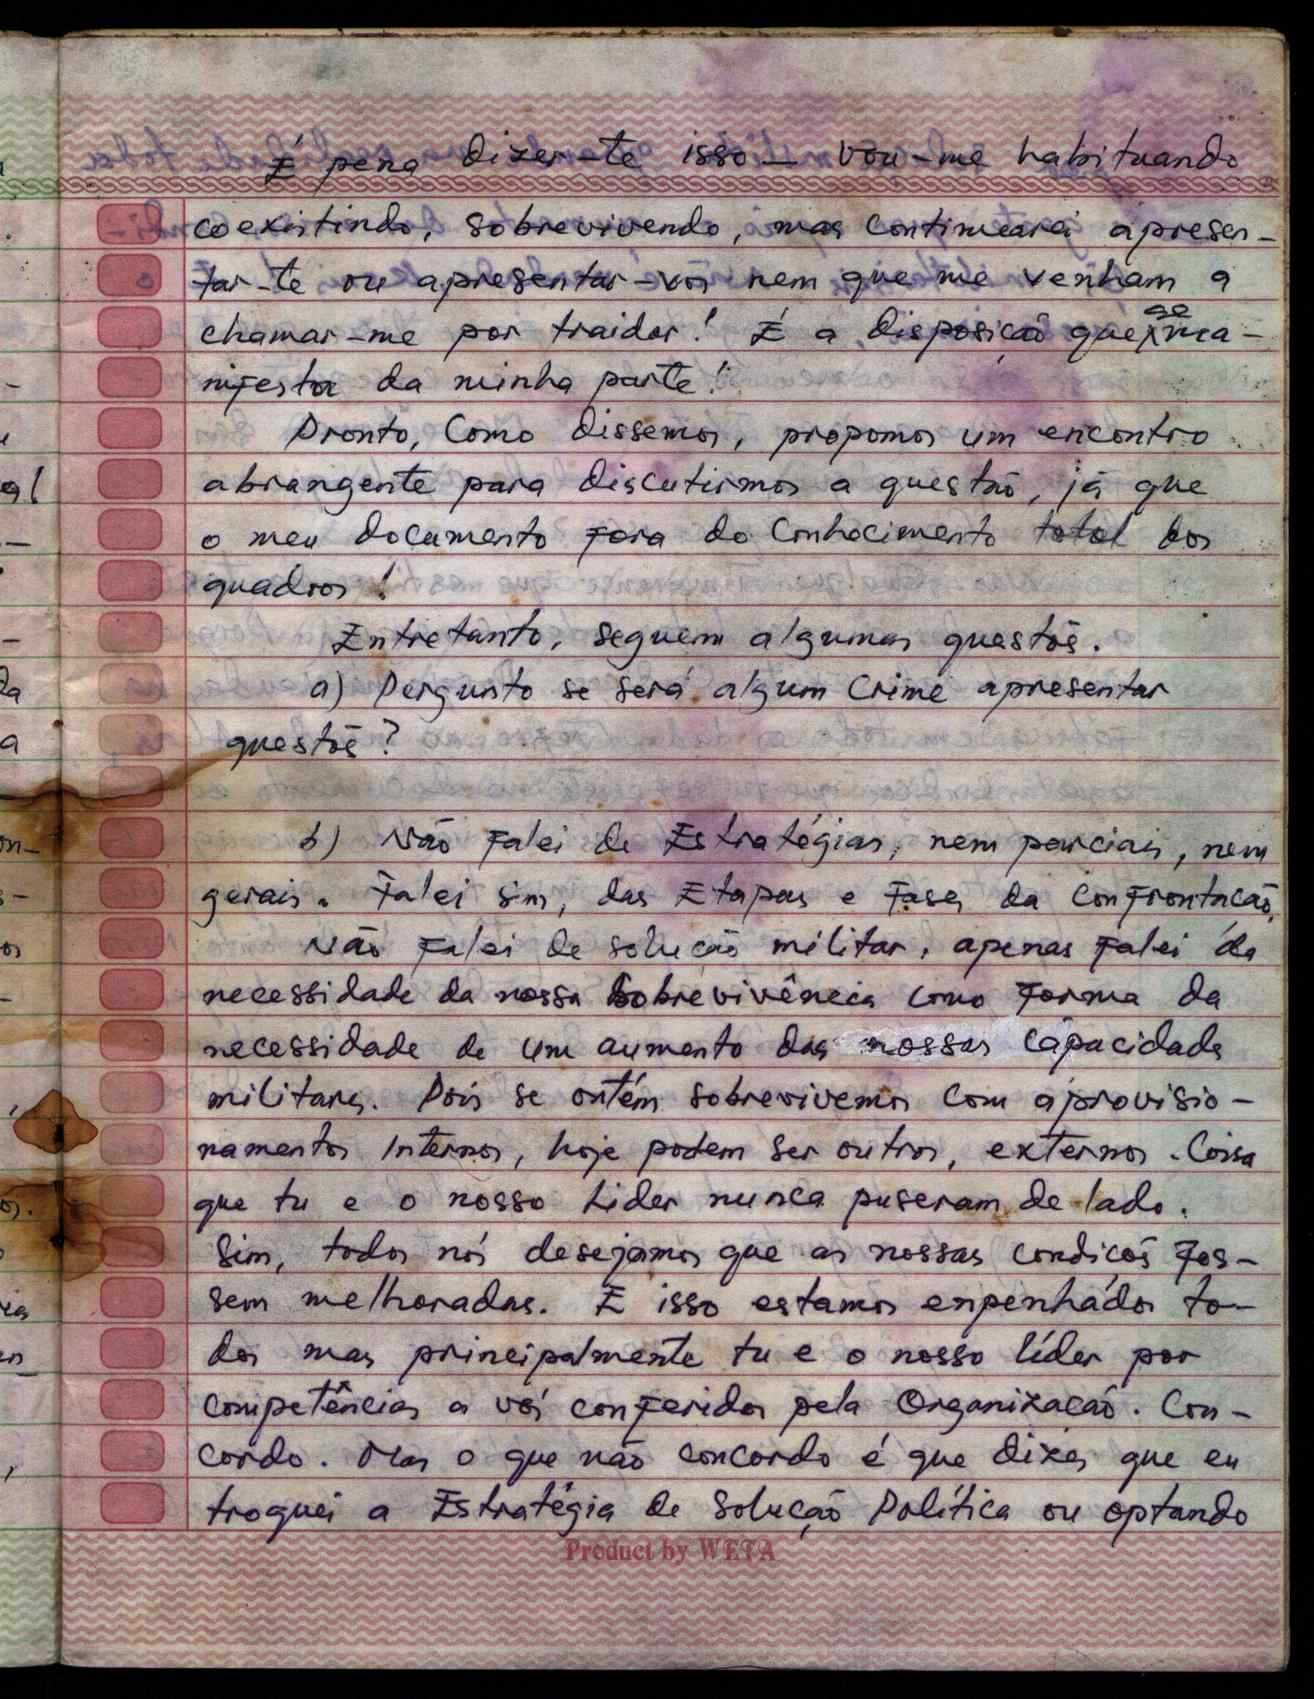 É pena dizer-te isso - vou-me habituando
coexistindo, sobrevivendo, mas continuarei apresen-
tar-te ou apresentar-vos nem que me venham a
chamar-me por traidor! É a disposição que se ma-
nifesta da minha parte!
Pronto, Como dissemos, propomos um encontro
abrangente para discutirmos a questão, já que
o meu documento fora do conhecimento total dos
quadros!
Entretanto, seguem algumas questõs.
a) Pergunto se será algum crime apresentar
questõs?
b) Não falei de Estratégias, nem parciais, nem
gerais. Falei sim, das Etapas e fases da confrontacão,
Não falei de solução militar, apenas falei da
necessidade da nossa Sobrevivência como forma da
necessidade de um aumento das nossas capacidade
militares. Pois se ontém sobrevivemos com aprovisio-
namentos Internos, hoje podem ser outros, externos. Coisa
que tu e o nosso Lider nunca puseram de lado.
Sim, todos nós desejamos que as nossas condicõs fos-
sem melhoradas. E isso estamos enpenhádos to-
dos mas principalmente tu e o nosso líder por
competências a vós conferidos pela Organizacão. Con-
cordo. Mas o que não concordo é que dizes que eu
troquei a Estratégia de Solução Política ou optando
Product by WETA